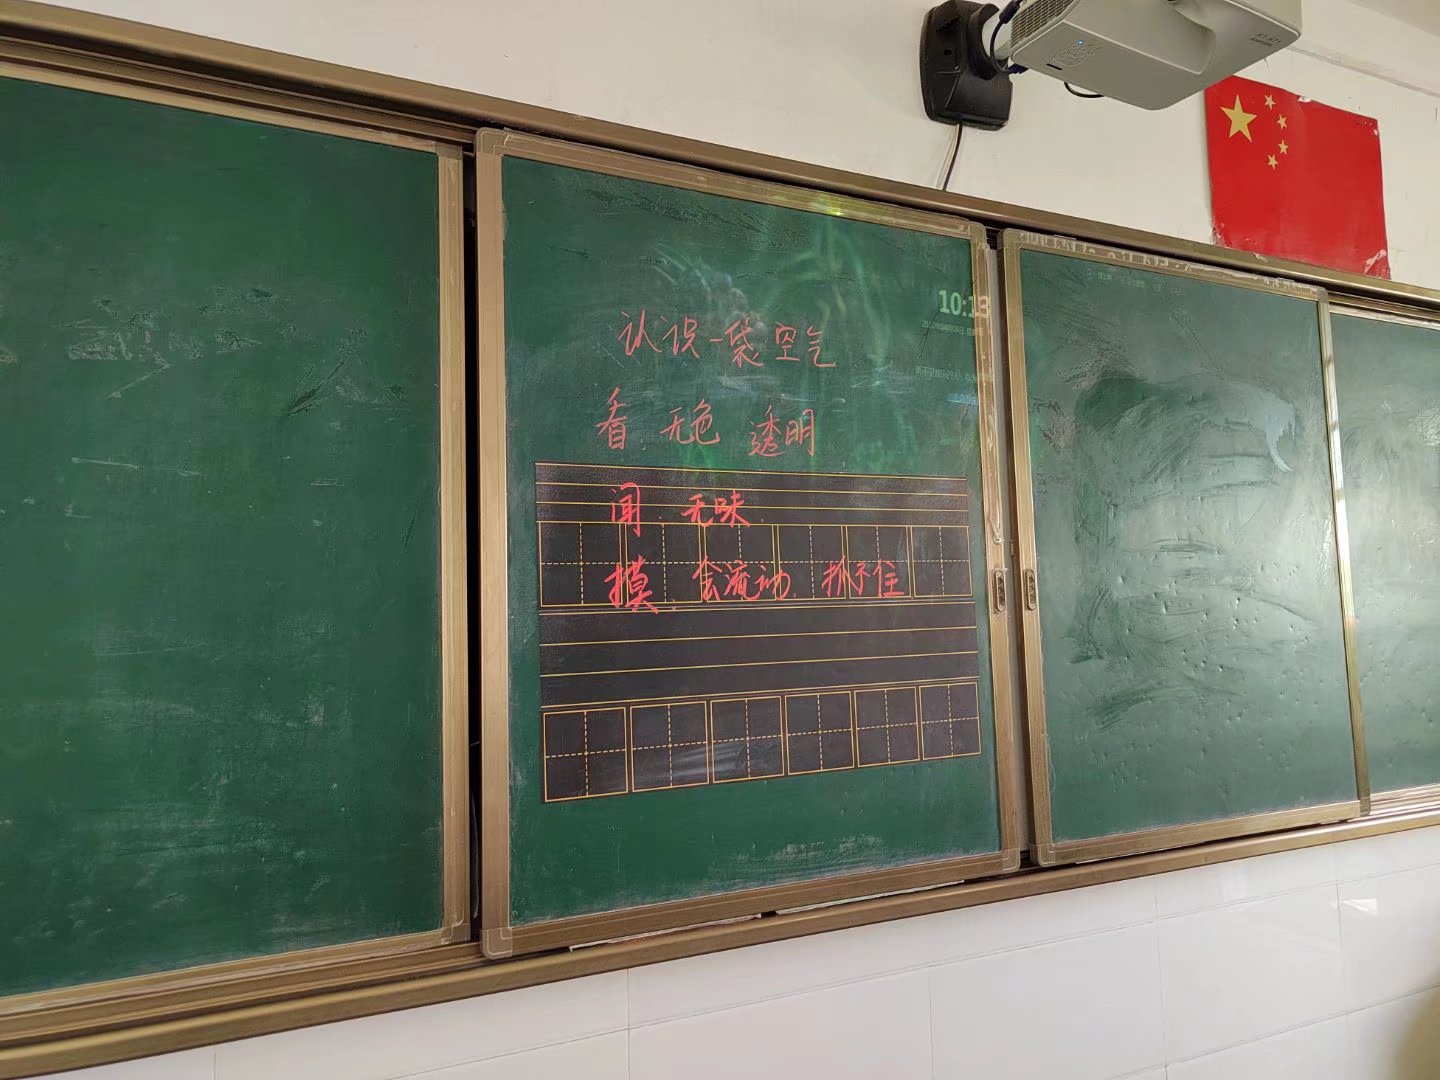 认识一袋空气
看.无色 透明
闻.无味.
摸.会流动.抓不住
10:13